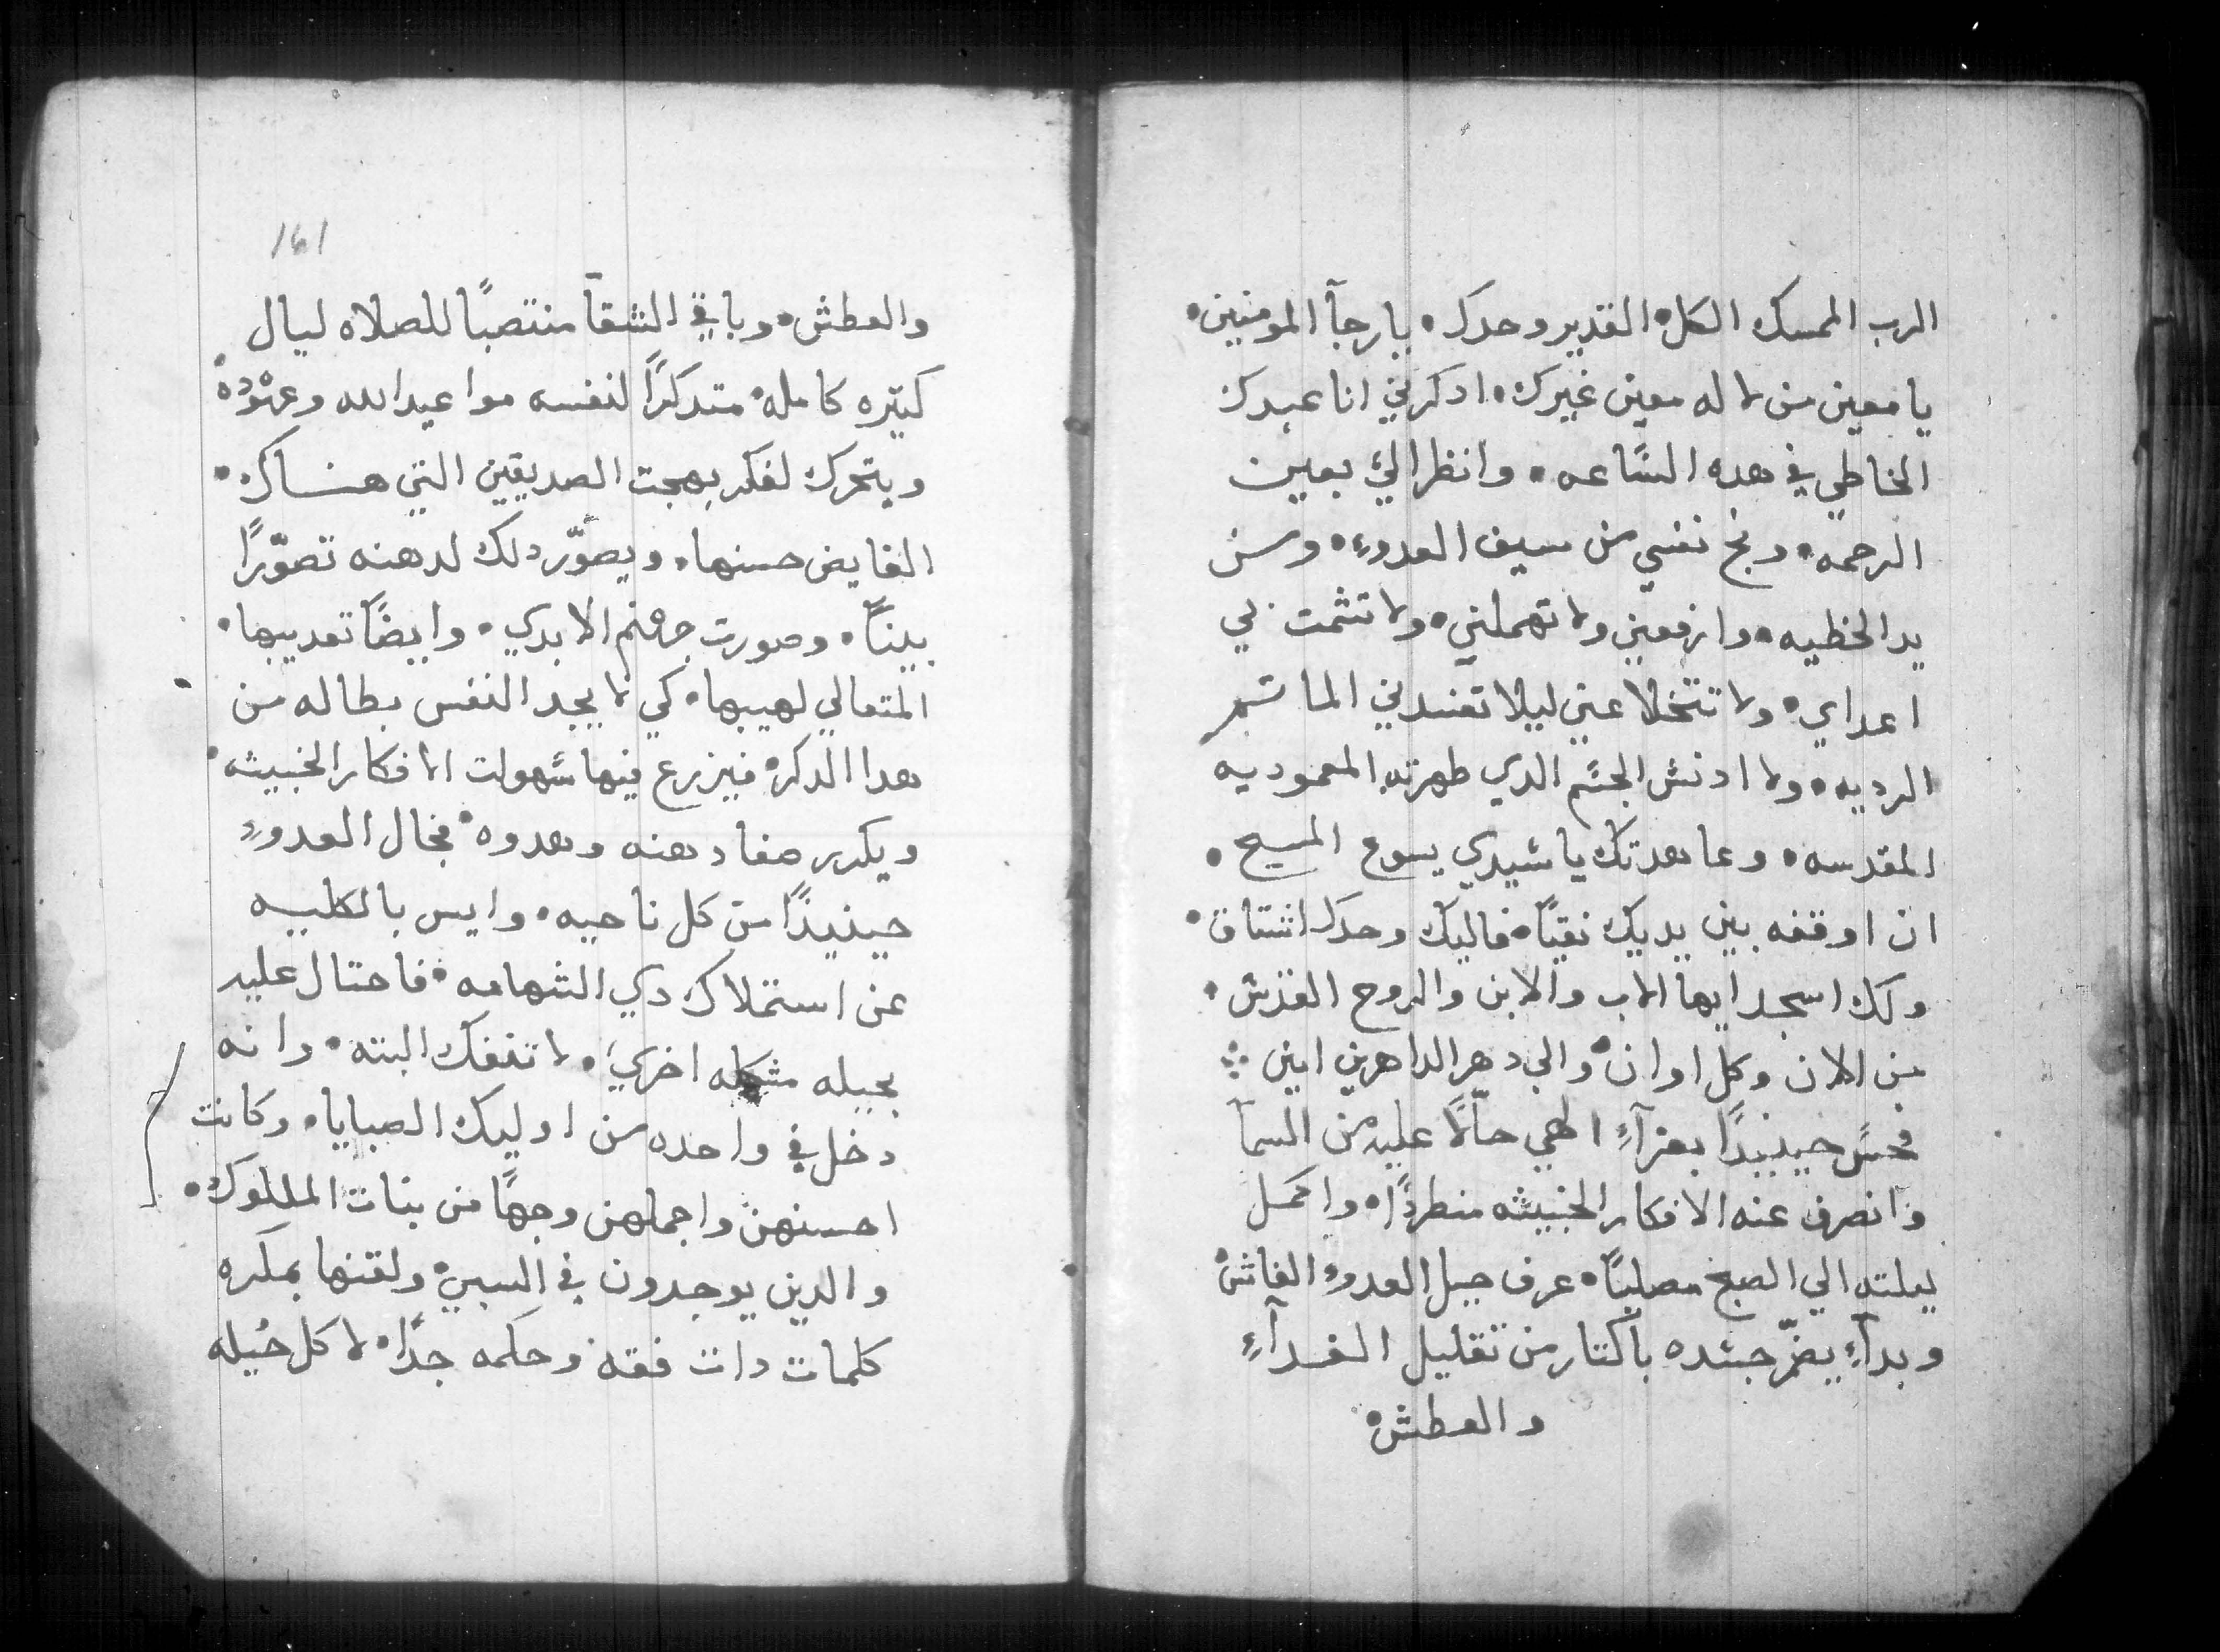 الرب الممسك الكل القدير وحدك • يا رجآ المومنين •
يا معين من لا له معين غيرك • ادكرني انا عبدك
الخاطي في هده السّاعه • وانظر اليّ بعين
الرحمه • ونج نفسي من سيف العدوء • ومن
يد الخطيه • وارفعني ولا تهملني • ولا تشمت بي
اعداي • ولا تتخلا عني ليلا تفسدني الماتم
الرديه • ولا ادنش الجسّم الدي طهرته المعموديه
المقدسه • وعاهدتك يا سّيدي يسوع المسيح •
ان اوقفه بين يديك نقيًا • فاليك وحدك اشتاق •
ولك اسجد ايها الاب والابن والروح القدش •
من الان وكل اوان • والي دهر الداهرين امين ⁘
فحسّ حينيدًا بعزآءٍ الهي حآلًا عليه من السمآ
وانصرف عنه الافكار الخبيثه منطردًا • واكمل
ليلته الي الصبح مصليًا • عرف حيل العدوء الغاش •
وبدآءِ يضمّر جسّده باكتار من تقليل الغدآءِ
والعطش •
161
والعطش • وباقي الشقآ منتصبًا للصلاه ليال
كتيره كامله • متدكرًا لنفسه مواعيد الله وعهوده •
ويتحرك لفكر بهجت الصديقين التي هناك •
الفايض حسنها • ويصوّر دلك لدهنه تصوّرًا
بينًا • وصورت جهنم الابدي • وايضًا تعديبها •
المتعالي لهيبها • كي لا يجد النفس بطاله من
هدا الدكر • فيزرع فيها سّهولت الافكار الخبيثه •
ويكدر صفا دهنه وهدوه • فحال العدوءِ
حينيدًا من كل ناحيه • وايس بالكليه
عن استملاك دي الشهامه • فاحتال عليه
بحيله اخري • لا تنفك البته • وانه
دخل في واحده من اوليك الصبايا • وكانت
احسنهن واجملهن وجهًا من بنات الملوك •
والدين يوجدون في السبي • ولقنها بمكره
كلمات دات فقه وحكمه جدًا • لا كل حيله